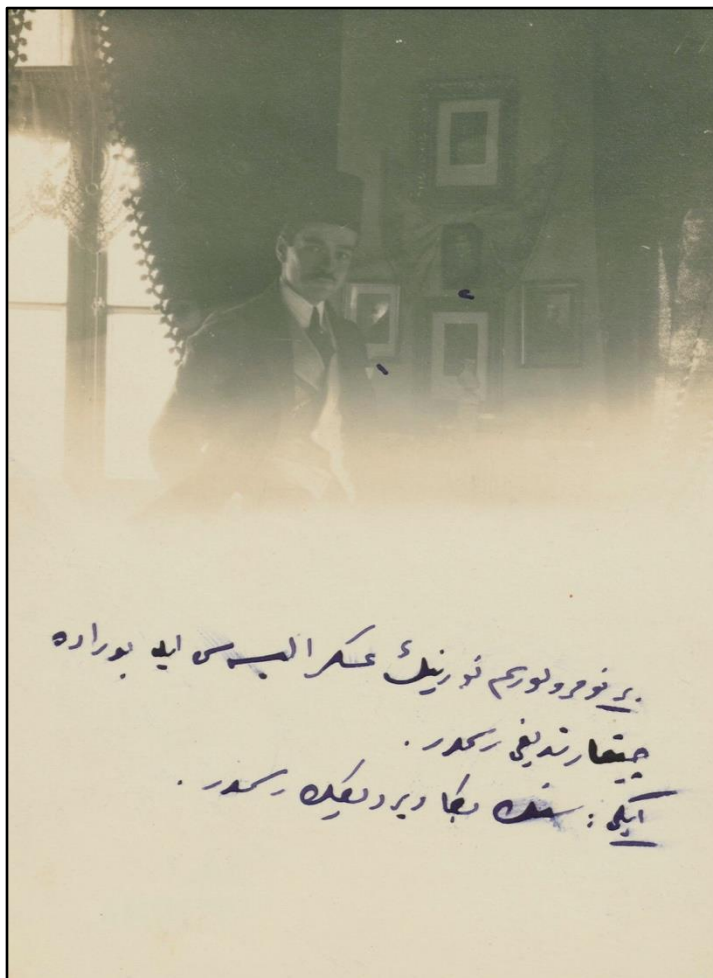 بر نومرولو رسم نورينڭ عسكر البسه سى ايله بوراده
چيقارتديغى رسمدر .
ايكى : سنك بكا ويرديكك رسمدر .